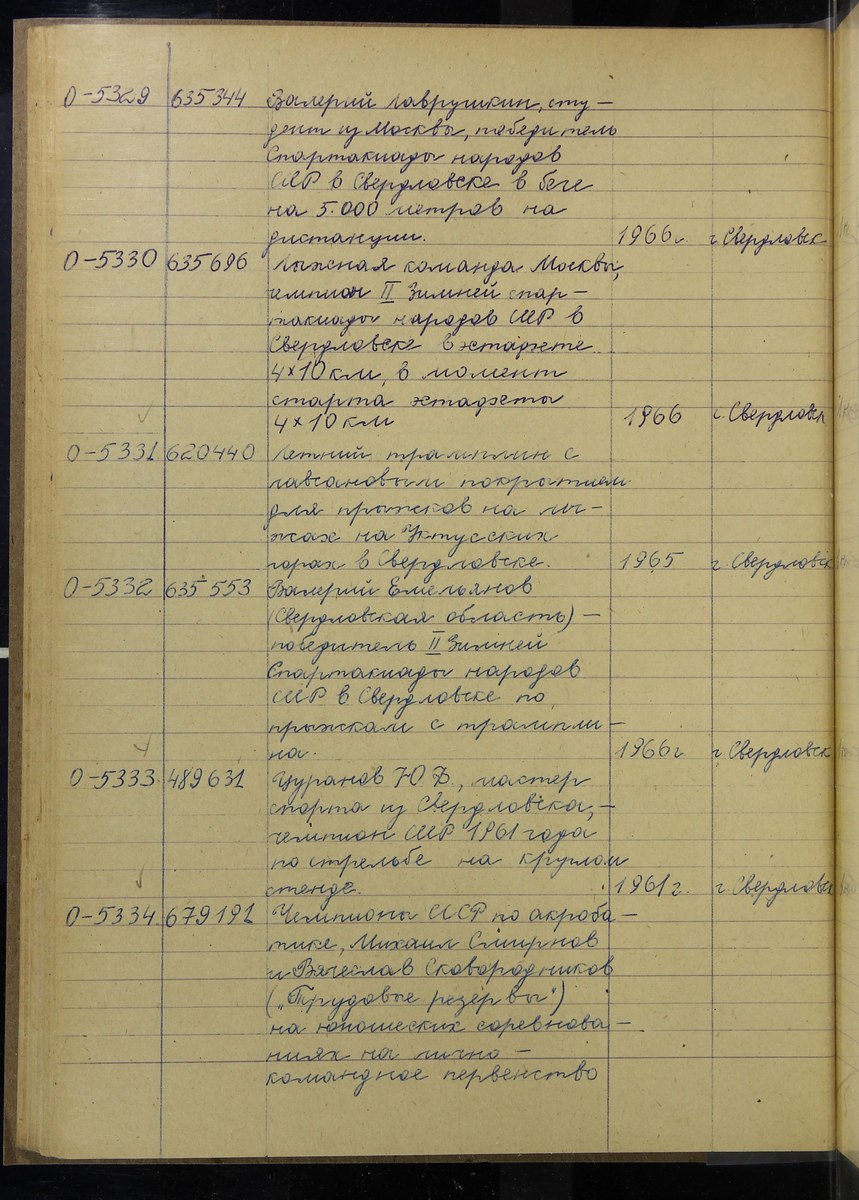 О-5329 635344 Валерий Лаврушкин, сту-
дент из Москвы, победитель
Спартакиады народов
СССР в Свердловске в беге
на 5.000 метров на
дистанции. 1966г. г. Свердловск
О-5330 635696 Лыжная команда Москвы,
чемпион II Зимней спар-
такиады народов СССР в
Свердловске в эстафете
4×10 км, в момент
старта эстафеты
4×10 км 1966 г. Свердловск
О-5331 620440 Летний трамплин с
лавсановым покрытием
для прыжков на лы-
жах на Уктусских
горах в Свердловске. 1965 г. Свердловск
О-5332 635553 Валерий Емельянов
(Свердловская область) -
победитель II Зимней
Спартакиады народов
СССР в Свердловске по
прыжкам с трампли-
на. 1966г г. Свердловск
О-5333 489631 Цуранов Ю.Ф., мастер
спорта из Свердловска, -
чемпион СССР 1961 года
по стрельбе на круглом
стенде. 1961 г. г. Свердловск
О-5334 679191 Чемпионы СССР по акроба-
тике, Михаил Смирнов
и Вячеслав Сковородников
("Трудовые резервы")
на юношеских соревнова-
ниях на лично-
командное первенство